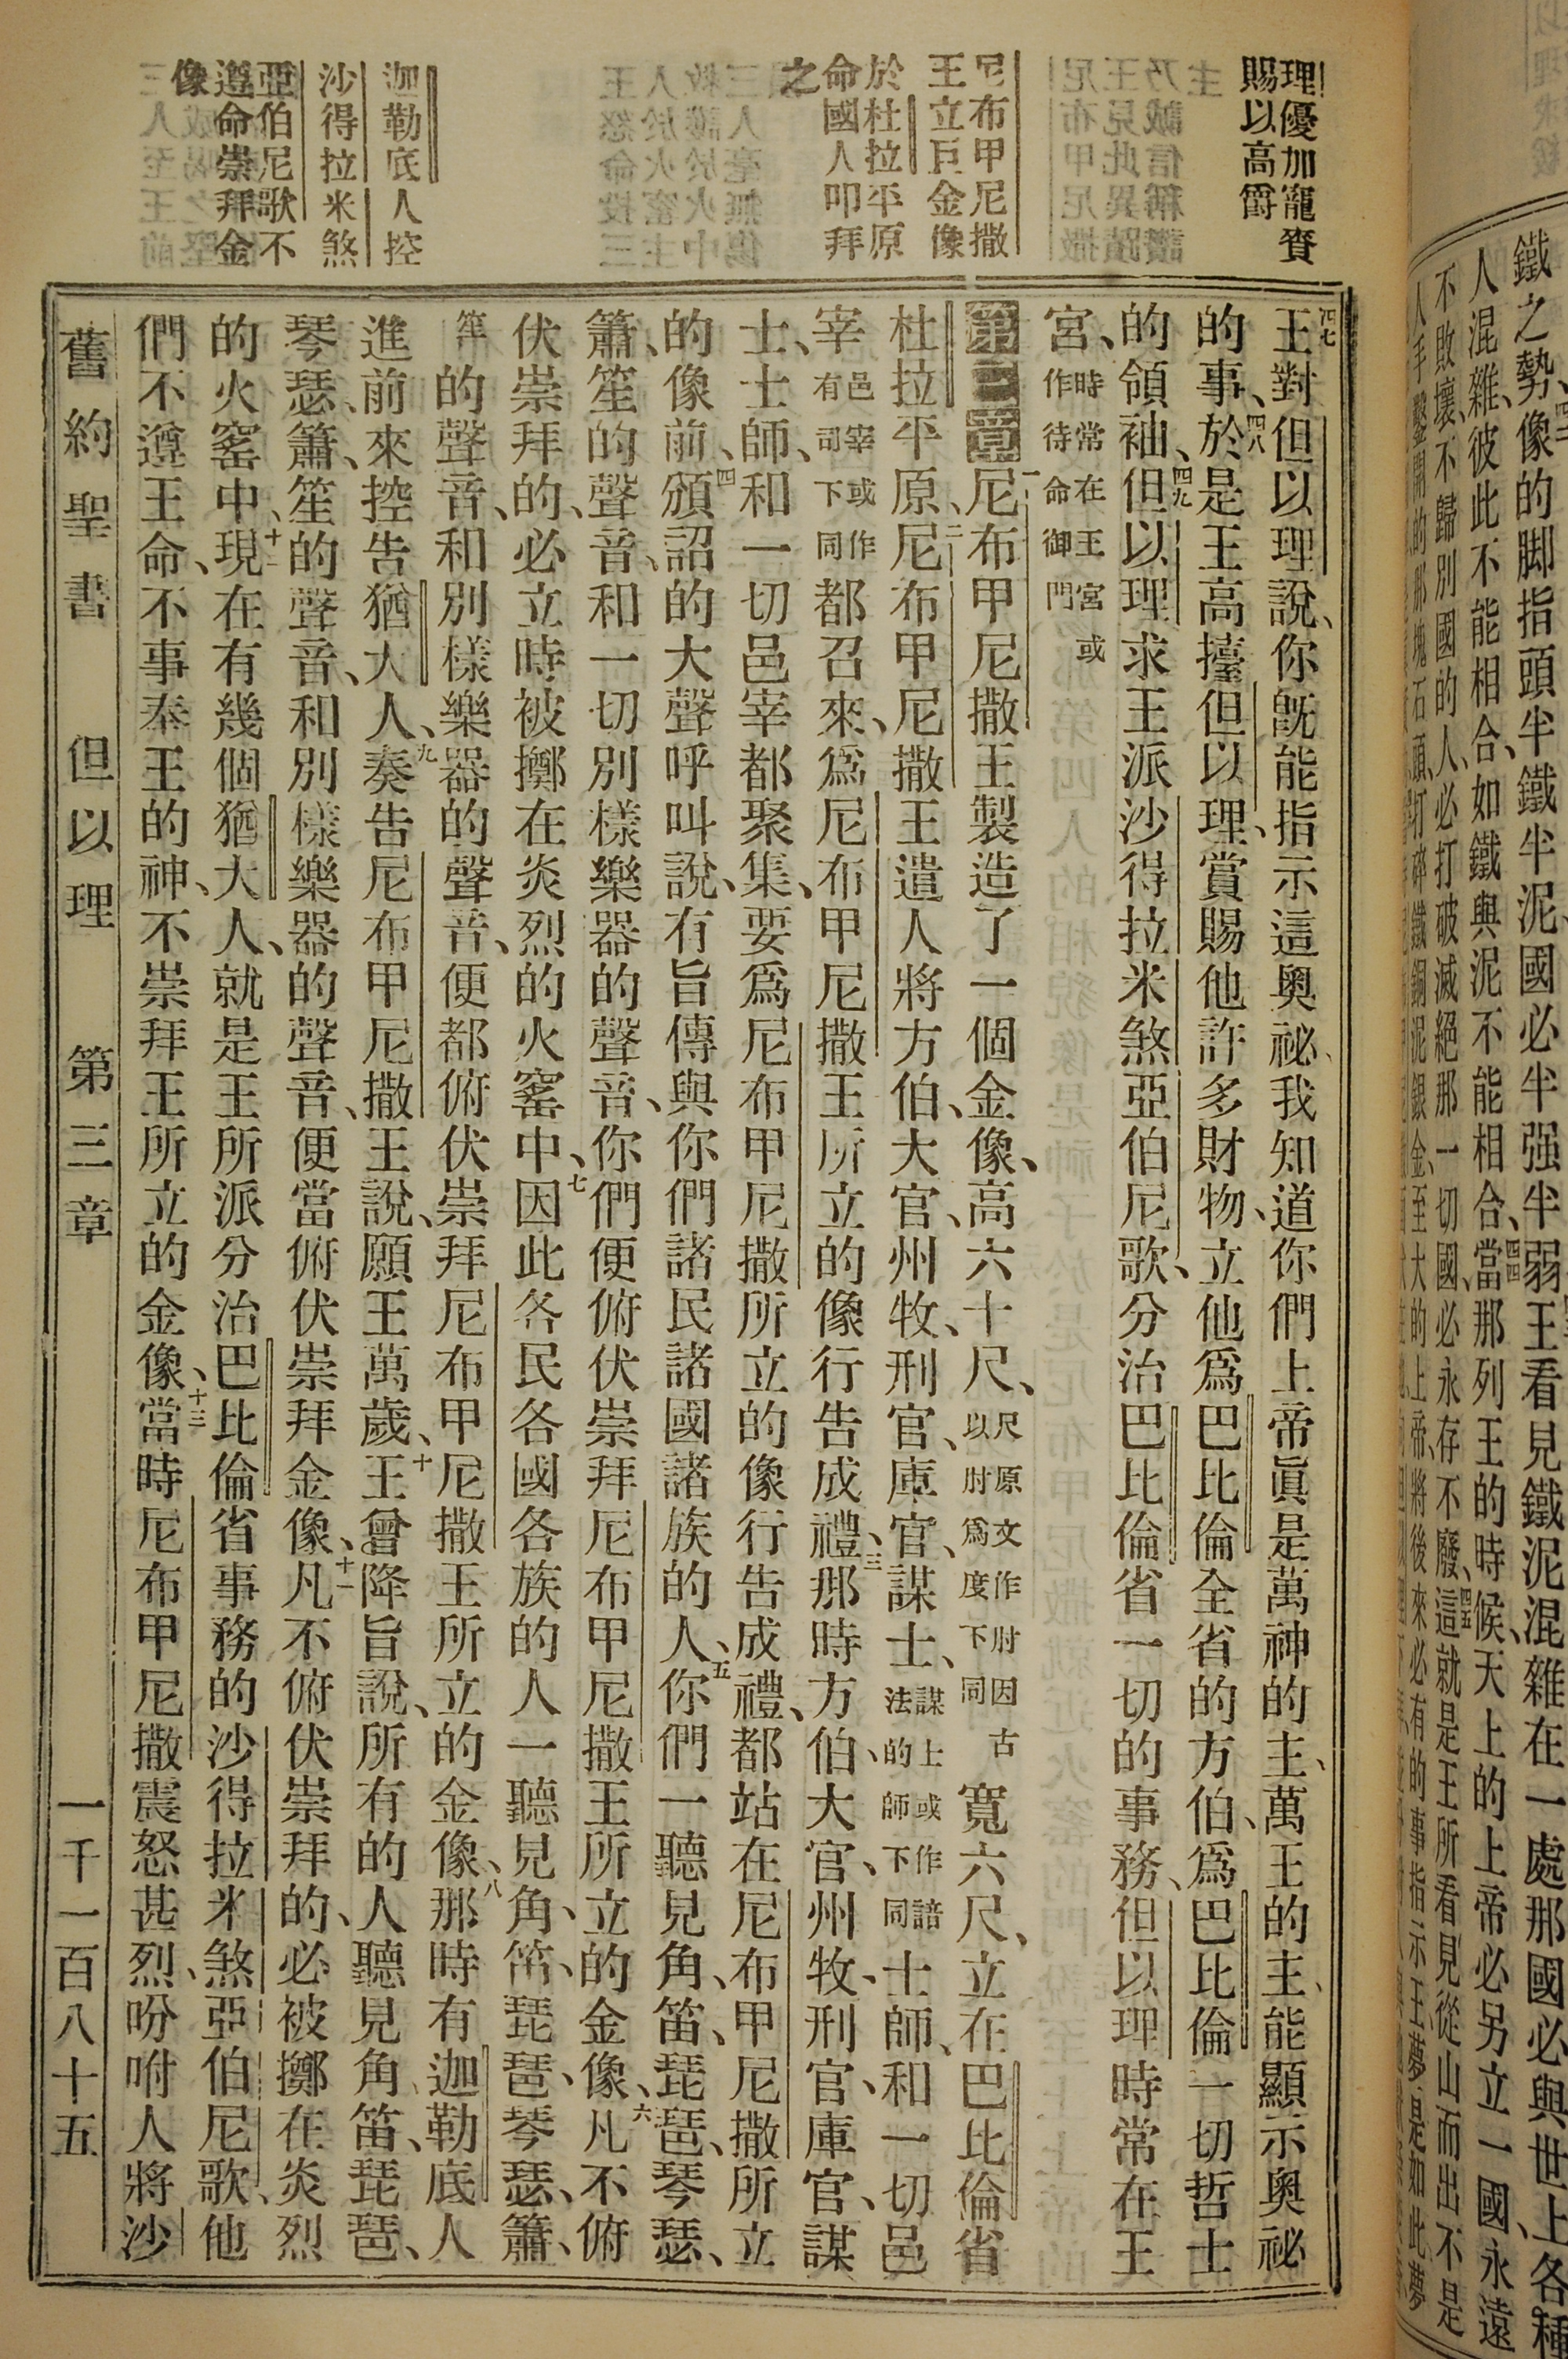 理優加寵賚
賜以高爵
尼布甲尼撒
王立巨金像
於杜拉平原
命國人叩拜
之
迦勒底人控
沙得拉米煞
亞伯尼歌不
遵命崇拜金
像
四七王對但以理說、你既能指示這奧祕、我知道你們上帝眞是萬神的主、萬王的主、能顯示奧祕
的事、四八於是王高擡但以理、賞賜他許多財物、立他爲巴比倫全省的方伯、爲巴比倫一切哲士
的領袖、四九但以理求王派沙得拉米煞亞伯尼歌、分治巴比倫省一切的事務、但以理時常在王
宮、時常在王宮或作待命御門
第三章 一尼布甲尼撒王製造了一個金像、高六十尺、尺原文作肘因古以肘爲度下同寬六尺、立在巴比倫省
杜拉平原、二尼布甲尼撒王遣人將方伯、大官、州牧、刑官、庫官、謀士、謀士或作諳法的師下同士師、和一切邑
宰邑宰或作有司下同都召來、爲尼布甲尼撒王所立的像行告成禮、三那時方伯、大官、州牧、刑官、庫官、謀
士、士師、和一切邑宰都聚集、要爲尼布甲尼撒所立的像行告成禮、都站在尼布甲尼撒所立
的像前、四頒詔的大聲呼叫說、有旨傳與你們諸民諸國諸族的人、五你們一聽見角、笛、琵琶、琴瑟、
簫、笙的聲音、和一切別樣樂器的聲音、你們便俯伏崇拜尼布甲尼撒王所立的金像、六凡不俯
伏崇拜的、必立時被擲在炎烈的火窰中、七因此各民各國各族的人一聽見角、笛、琵琶、琴瑟、簫、
笙的聲音、和別樣樂器的聲音、便都俯伏崇拜尼布甲尼撒王所立的金像、八那時有迦勒底人
進前來控告猶大人、九奏告尼布甲尼撒王說、願王萬歲、十王曾降旨說、所有的人聽見角、笛、琵琶、
琴瑟、簫、笙的聲音、和別樣樂器的聲音、便當俯伏崇拜金像、十一凡不俯伏崇拜的、必被擲在炎烈
的火窰中、十二現在有幾個猶大人、就是王所派分治巴比倫省事務的沙得拉米煞亞伯尼歌、他
們不遵王命、不事奉王的神、不崇拜王所立的金像、十三當時尼布甲尼撒震怒甚烈、吩咐人將沙
舊約聖書 但以理 第三章 一千一百八十五
鐵之勢、像的脚指頭半鐵半泥、國必半强半弱、王看見鐵泥混雜在一處那國必與世上各種
人混雜、彼此不能相合、如鐵與泥不能相合、四四當那列王的時候、天上的上帝必另立一國、永遠
不敗壞、不歸別國的人、必打破滅絕那一切國、必永存不廢、四五這就是王所看見從山而出不是
人手鑿開的那塊石頭、打碎鐵銅泥銀金、至大的上帝、將後來必有的事指示王、夢是如此、夢